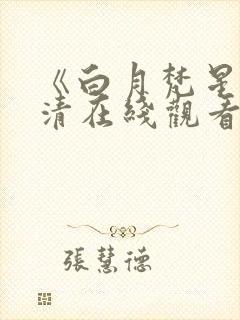 《白月梵星
清在綫觀看
張慧德